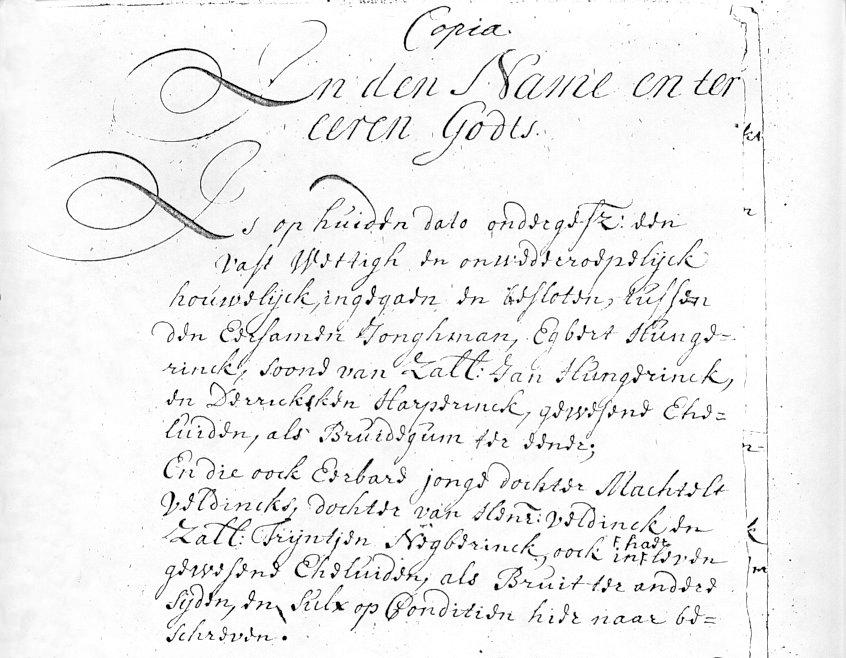 Copia.
In den Name en ter
eeren Godts.
Is op huiden dato ondergesz: een
vast Wettigh en onwederroepelijck
houwelijck, ingegaen en besloten, tussen
den Eersamen Jonghman, Egbert Hunge-
rinck, soone van Zall: Jan Hungerinck,
en Derricksken Harperinck, gewesene Ehe-
luiden, als Bruidegum ter eener;
En die oock Eerbare jonge dochter Machtelt
Veldincks, dochter van Henr: Veldinck en
Zall: Trijntjen Negberinck, oock in haer leven
gewesene Eheluiden, als Bruit ter andere
sijden, en sulx op Conditien hier naar be-
schreven.